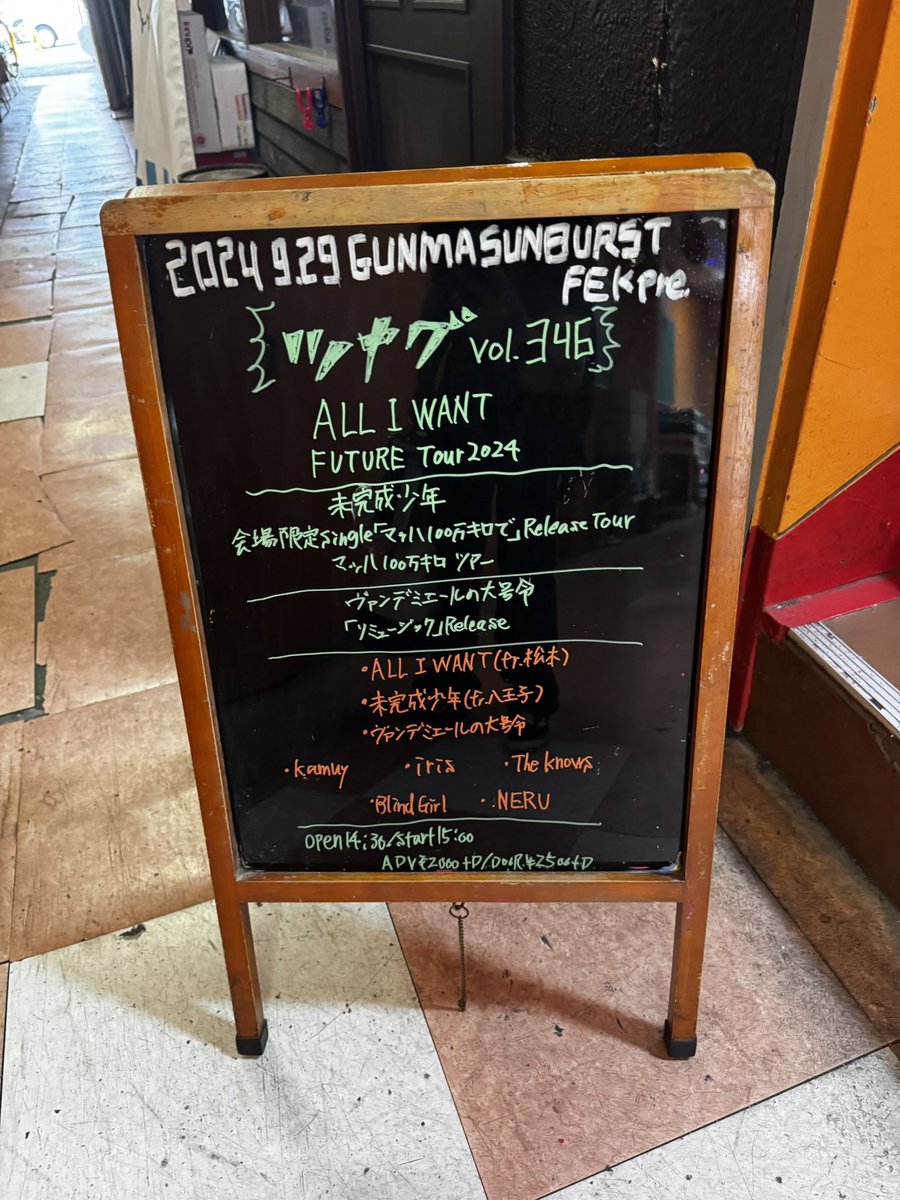 2024 9.29 GUNMASUNBURST
FEKpre.
ツナグ vol.346
ALL I WANT
FUTURE Tour2024
未完成少年
会場限定Single「マッハ100万キロで」Release Tour
マッハ100万キロ ツアー
ヴァンデミエールの大号令
「リミュージック」Release
・ALL I WANT(fr.松本)
・未完成少年(fr.八王子)
・ヴァンデミエールの大号令
・kamuy ・iris ・The knows
・Blind Girl ・NERU
OPEN14:30/start15:00
ADV¥2000+D/DOOR¥2500+D